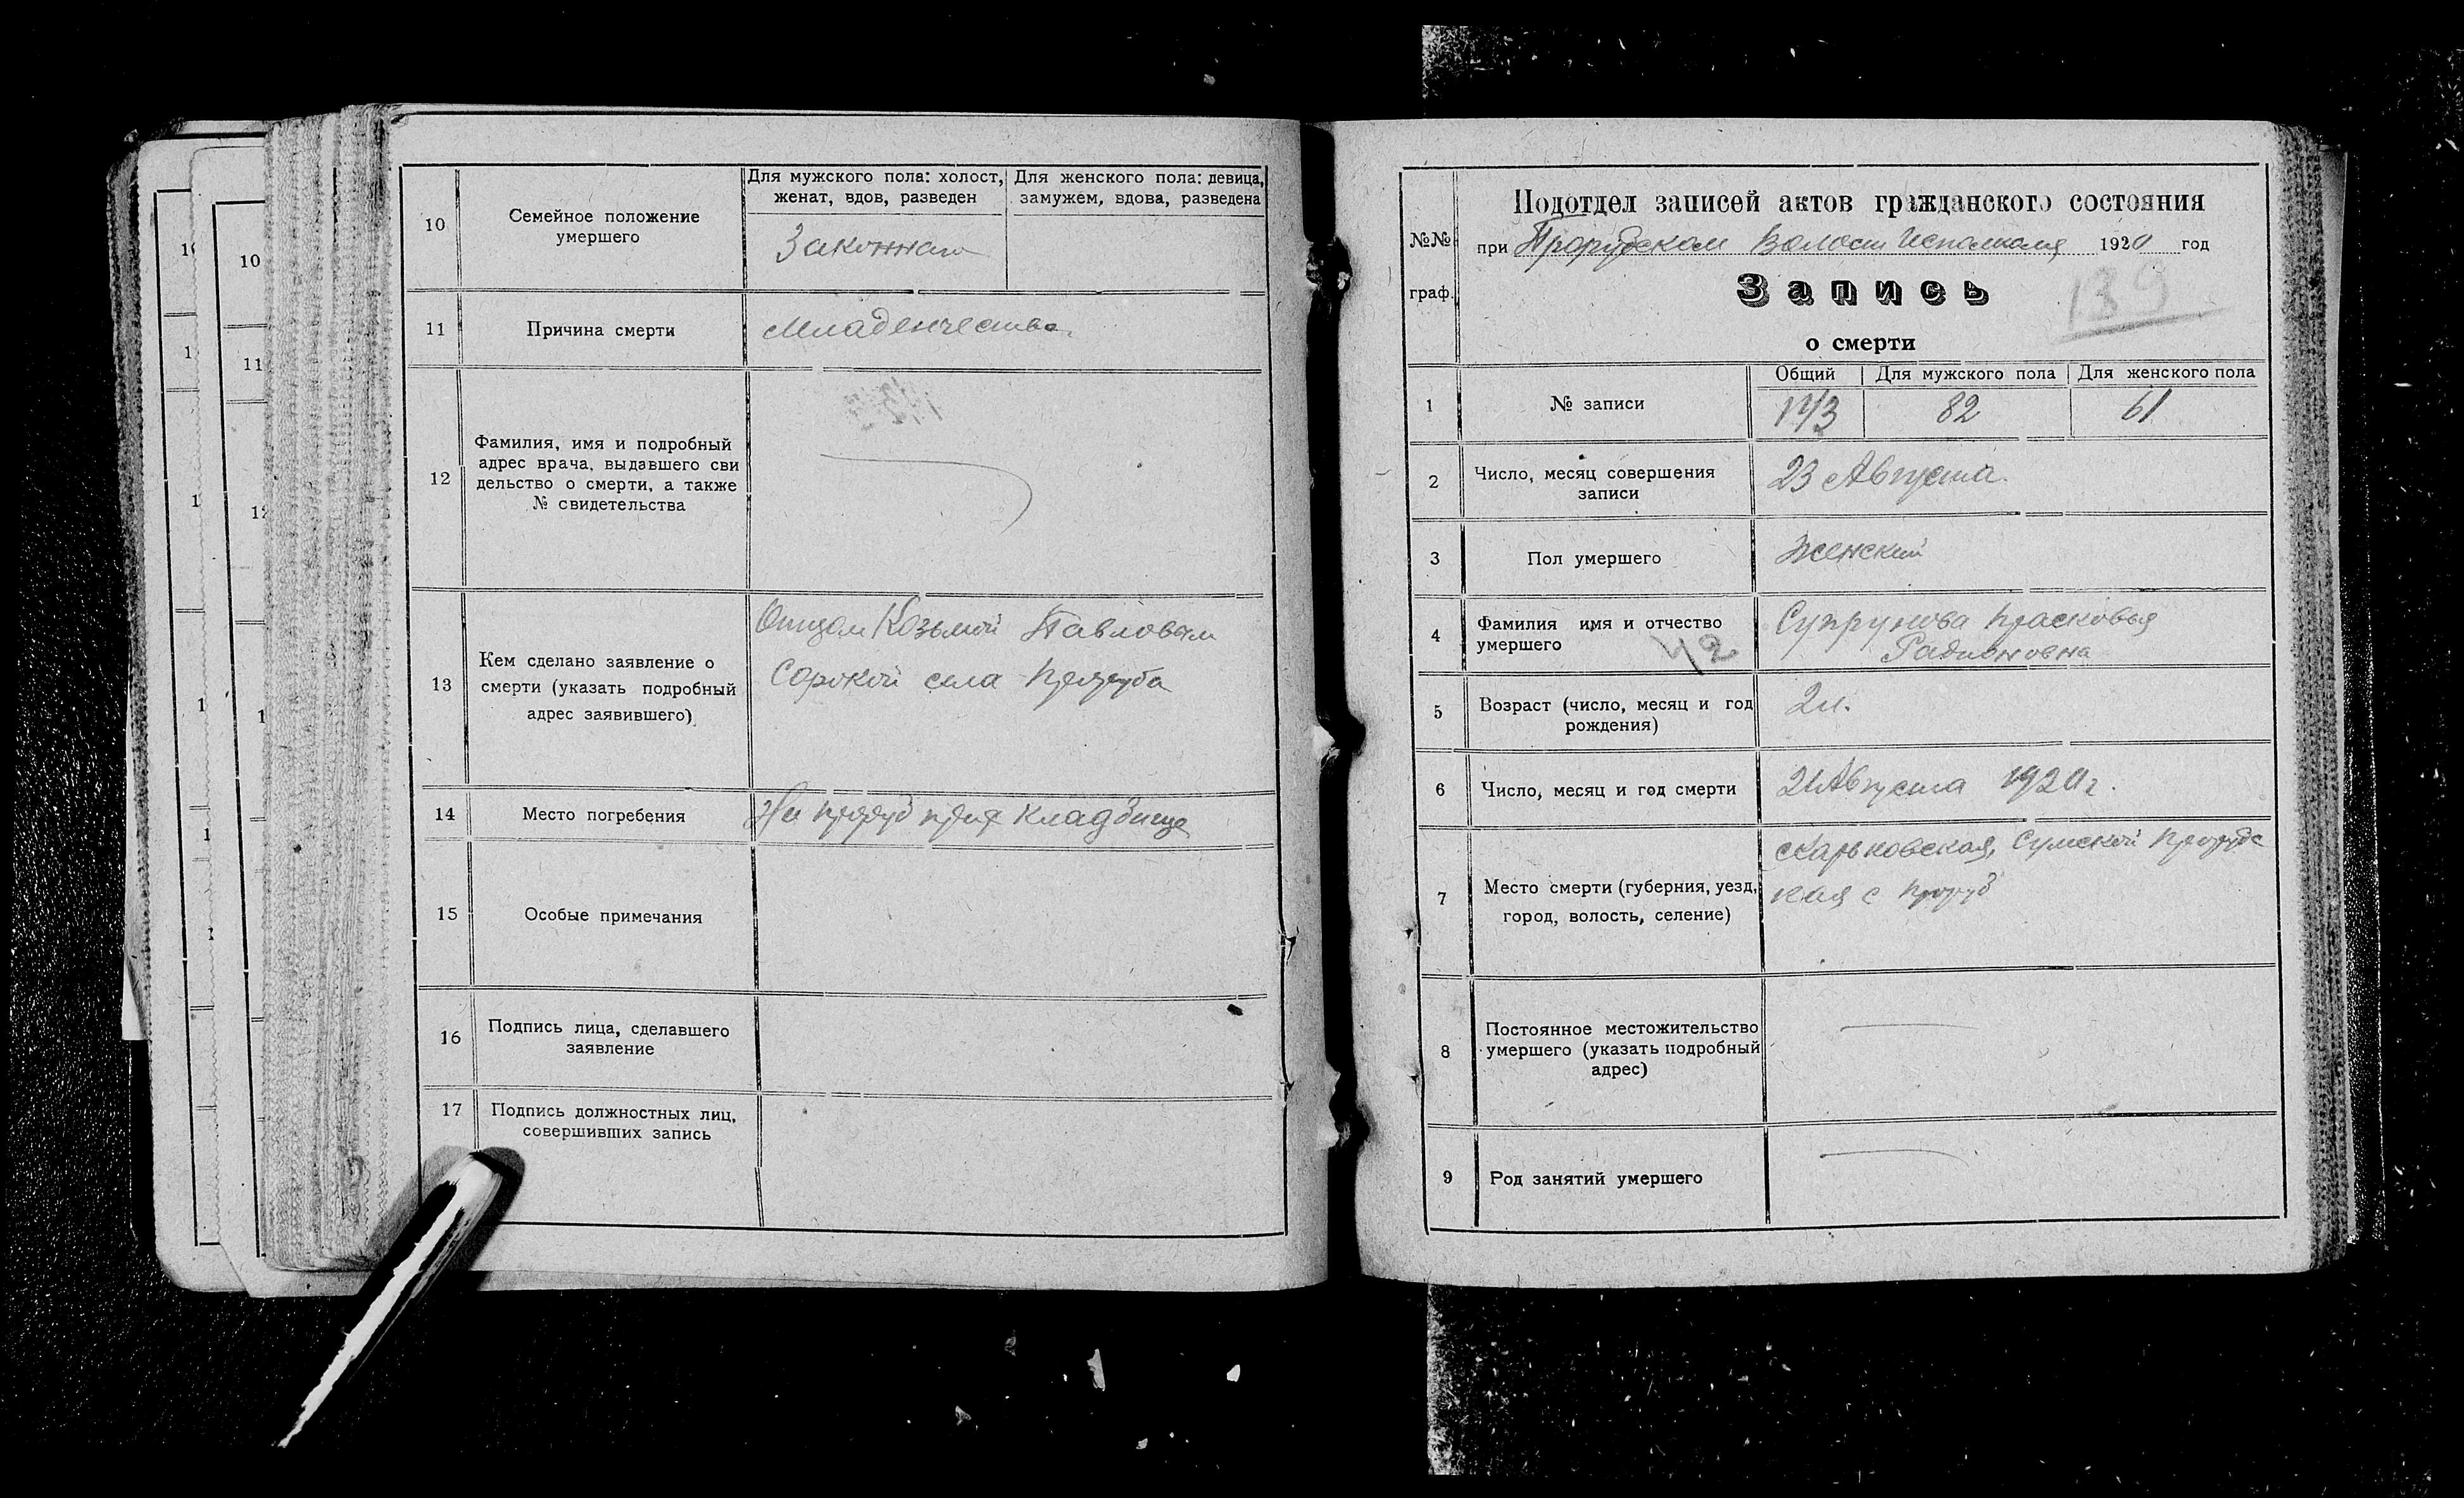 10
Семейное положение
умершего
Для мужского пола: холост,
женат, вдов, разведен
Для женского пола: девица,
замужем, вдова, разведена
11
Причина смерти
Младенчества
12
Фамилия, имя и подробный
адрес врача, выдавшего сви
дельство о смерти, а также
№ свидетельства
13
Кем сделано заявление о
смерти (указать подробный
адрес заявившего)
Отцом Козьмой Павловым
Сорокой села Проруба
14
Место погребения
На Проруб прих кладбище
15
Особые примечания
16
Подпись лица, сделавшего
заявление
17
Подпись должностных лиц,
совершивших запись
№№
граф.
Подотдел записей актов гражданского состояния
при Прорубском Волост Исполкоме 1920 год
Запись
139
о смерти
1
№ записи
Общий
Для мужского пола
Для женского пола
143
82
61
2
Число, месяц совершения
записи
23 Августа
3
Пол умершего
Женский
4
Фамилия имя и отчество
умершего
42
Супрунова Прасковья
Радионовна
5
Возраст (число, месяц и год
рождения)
6
Число, месяц и год смерти
21 Августа 1920 г.
7
Место смерти (губерния, уезд,
город, волость, селение)
Харьковская, Сумской Прорубс
кая с Проруб
8
Постоянное местожительство
умершего (указать подробный
адрес)
9
Род занятий умершего